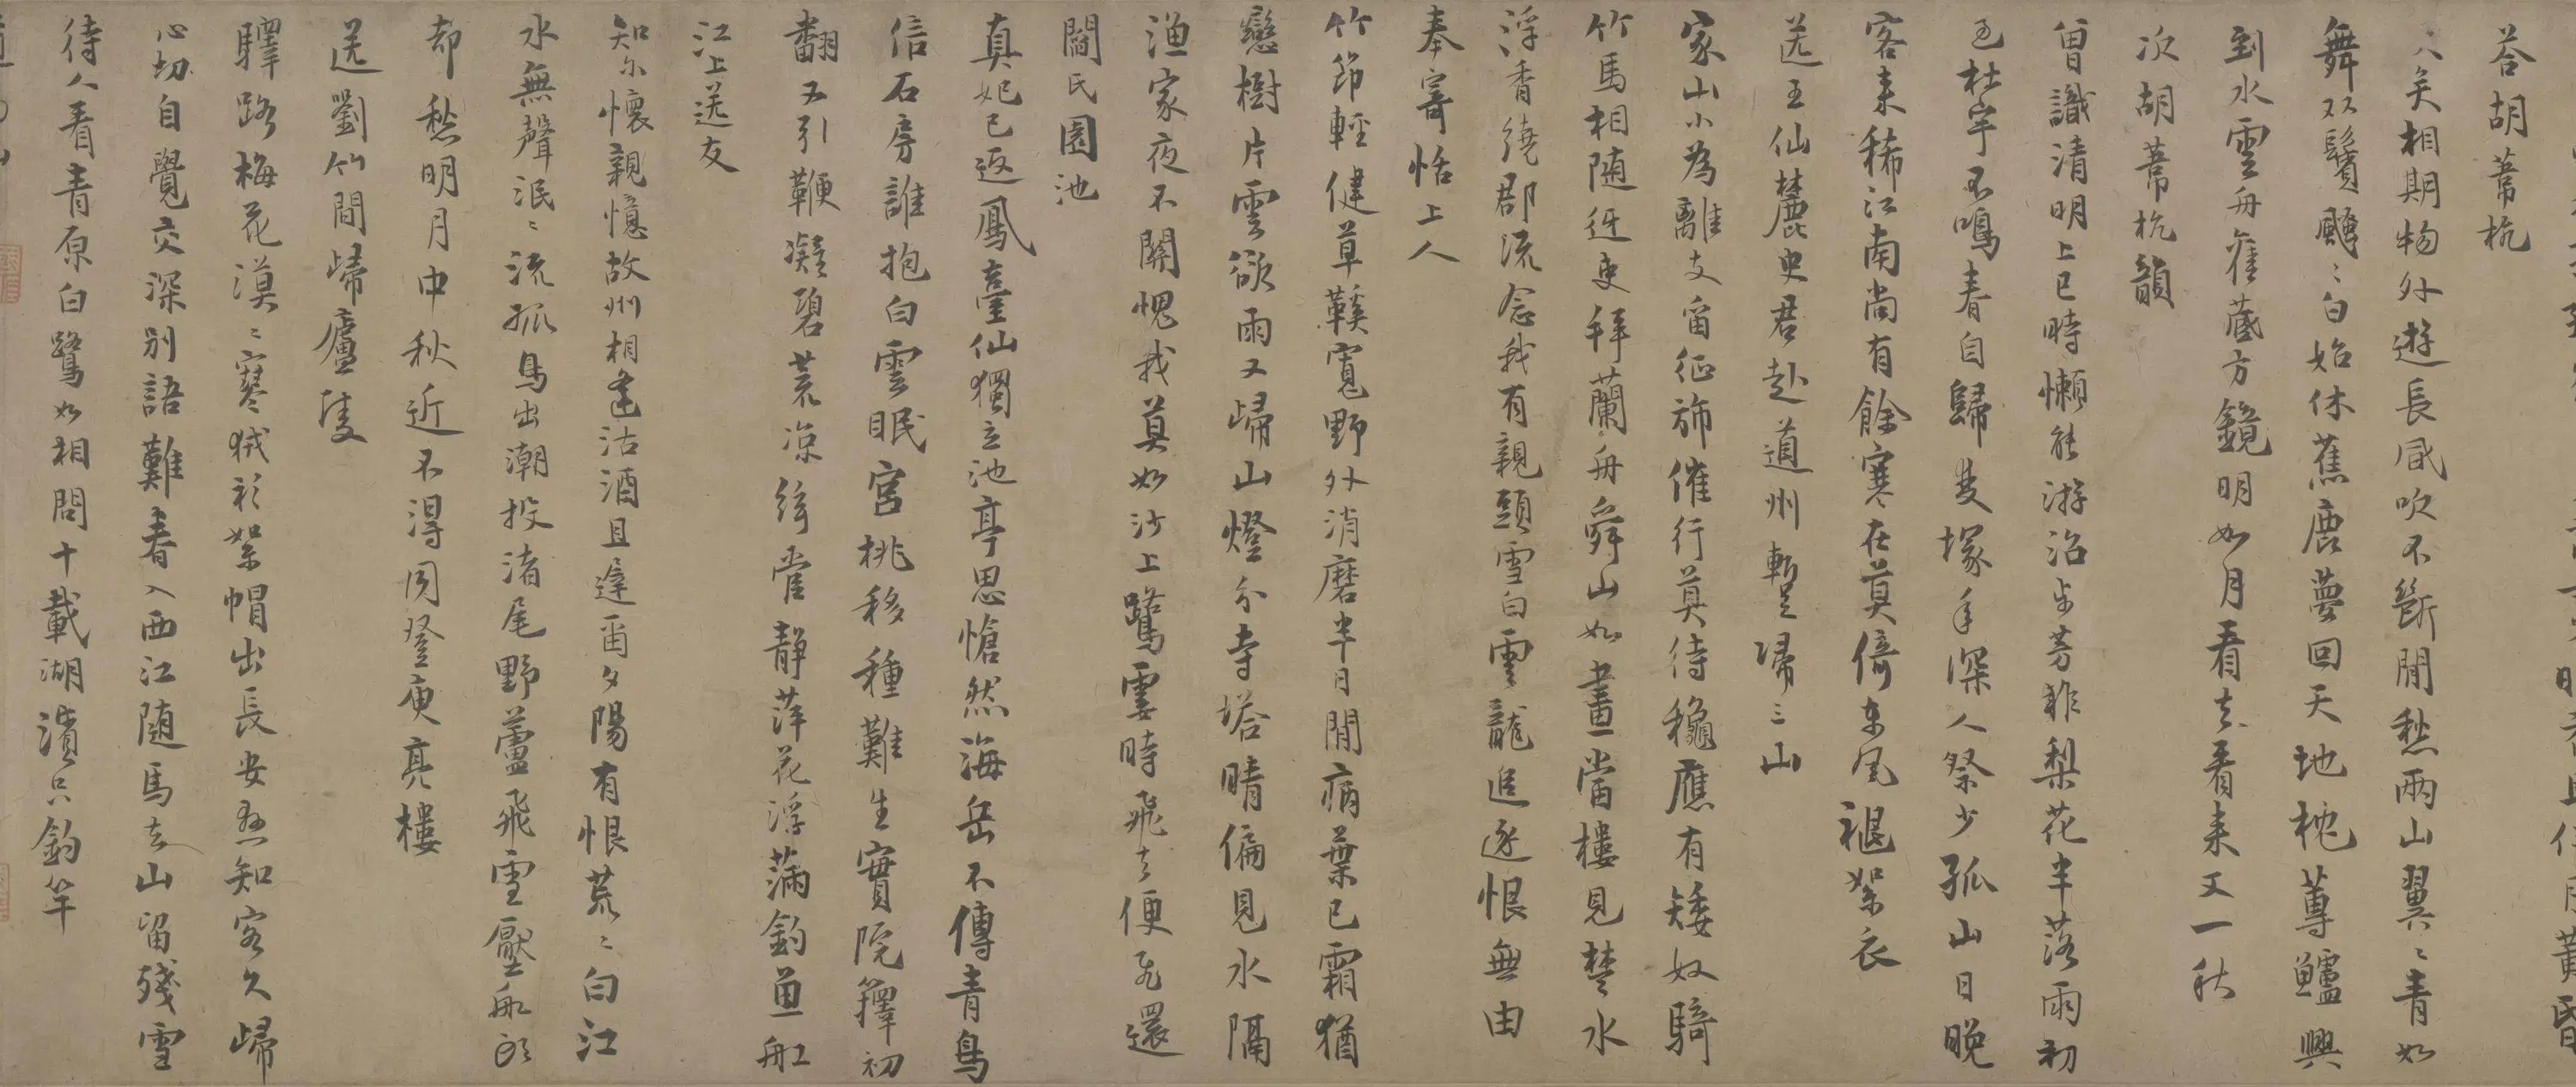 荅胡葦杭
久矣相期物外遊長風吹不斷閒愁兩山翼〻青如
舞双鬢飃〻白始休蕉鹿夢回天地枕蓴鱸興
到水雲舟舊藏方鏡明如月看去看来又一秋
次胡葦杭韻
曾識清明上巳時懶能游冶步芳菲梨花半落雨初
过杜宇不鳴春自歸雙塚年深人祭少孤山日晚
客来稀江南尚有餘寒在莫倚东風褪絮衣
送王仙麓史君赴道州暫歸三山
家山小為離支留征斾催行莫待穐應有矮奴騎
竹馬相随迓吏拜蘭舟舜山如畫當樓見楚水
浮香繞郡流念我有親頭雪白雲龍追逐恨無由
奉寄恬上人
竹節輕健草鞵寬野外消磨半日閒病葉已霜猶
戀樹片雲欲雨又歸山燈分寺塔晴偏見水隔
漁家夜不關愧我莫如沙上鷺霎時飛去便飛還
閻氏園池
真妃已返鳳臺仙獨立池亭思愴然海岳不傳青鳥
信石房誰抱白雲眠宮桃移種難生實院籜初
翻又引鞭凝碧荒凉絃管靜萍花浮滿釣魚舡
江上送友
知尔懷親憶故州相逢沽酒且遲留夕陽有恨荒〻白江
水無聲泯〻流孤鳥出潮投渚尾野蘆飛雪壓舡頭
却愁明月中秋近不得同登庾亮樓
送劉竹間歸廬陵
驛路梅花漠〻寒狨衫絮帽出長安懸知客久歸
心切自覺交深別語難春入西江随馬去山留殘雪
待人看青原白鷺如相問十載湖濱只釣竿